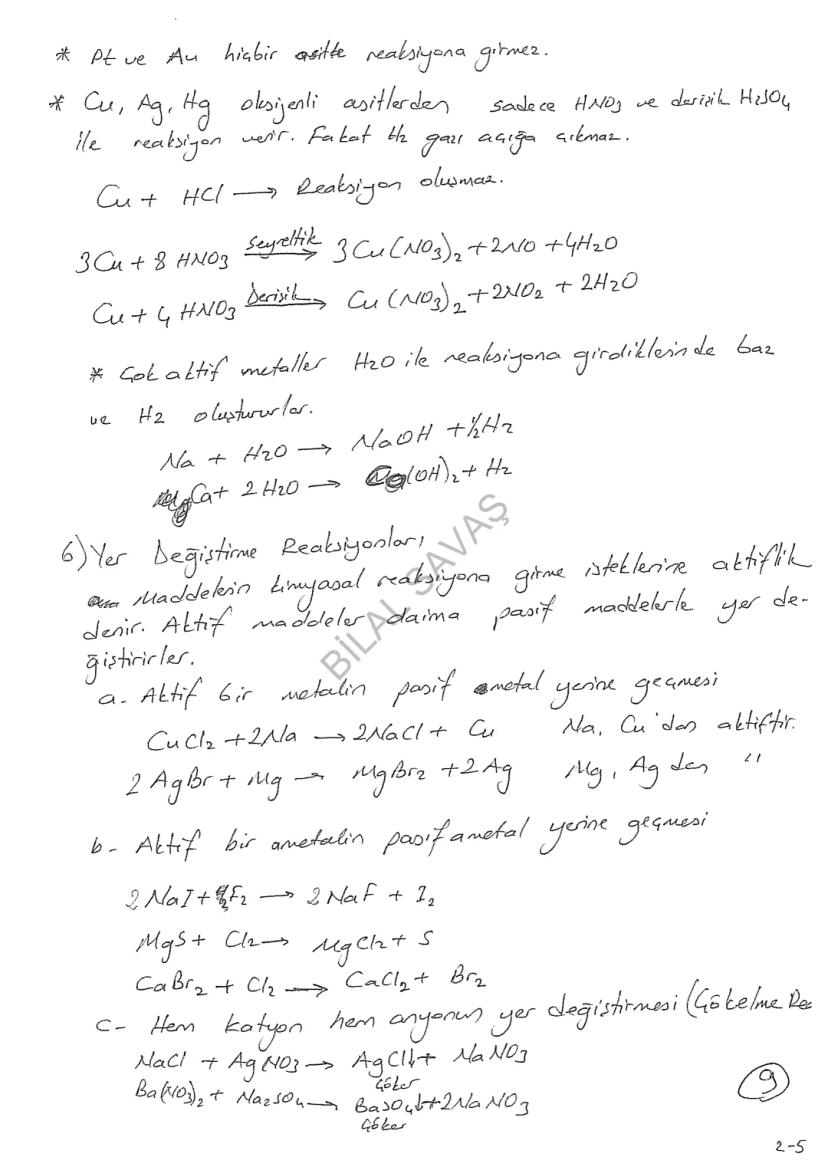 * Pt ve Au hiçbir asitle reaksiyona girmez.
* Cu, Ag, Hg oksijenli asitlerden sadece HNO3 ve derişik H2SO4
ile reaksiyon verir. Fakat H2 gazı açığa çıkmaz.
Cu + HCl → Reaksiyon oluşmaz.
3Cu + 8 HNO3 —Seyreltik→ 3Cu(NO3)2 + 2NO + 4H2O
Cu + 4 HNO3 —Derişik→ Cu(NO3)2 + 2NO2 + 2H2O
* Çok aktif metaller H2O ile reaksiyona girdiklerinde baz
ve H2 oluştururlar.
Na + H2O → NaOH + ½H2
Ca + 2 H2O → Ca(OH)2 + H2
6) Yer Değiştirme Reaksiyonları
Maddelerin kimyasal reaksiyona girme isteklerine aktiflik
denir. Aktif maddeler daima pasif maddelerle yer de-
ğiştirirler.
BİLAL SAVAŞ
a- Aktif bir metalin pasif metal yerine geçmesi
CuCl2 + 2Na → 2NaCl + Cu Na, Cu'dan aktiftir.
2 AgBr + Mg → MgBr2 + 2 Ag Mg, Ag den "
b- Aktif bir ametalin pasif ametal yerine geçmesi
2 NaI + F2 → 2 NaF + I2
MgS + Cl2 → MgCl2 + S
CaBr2 + Cl2 → CaCl2 + Br2
c- Hem katyon hem anyonun yer değiştirmesi (Çökelme Rea
NaCl + AgNO3 → AgCl↓ + NaNO3
Çöker
Ba(NO3)2 + Na2SO4 → BaSO4↓ + 2NaNO3
Çöker
9
2-5